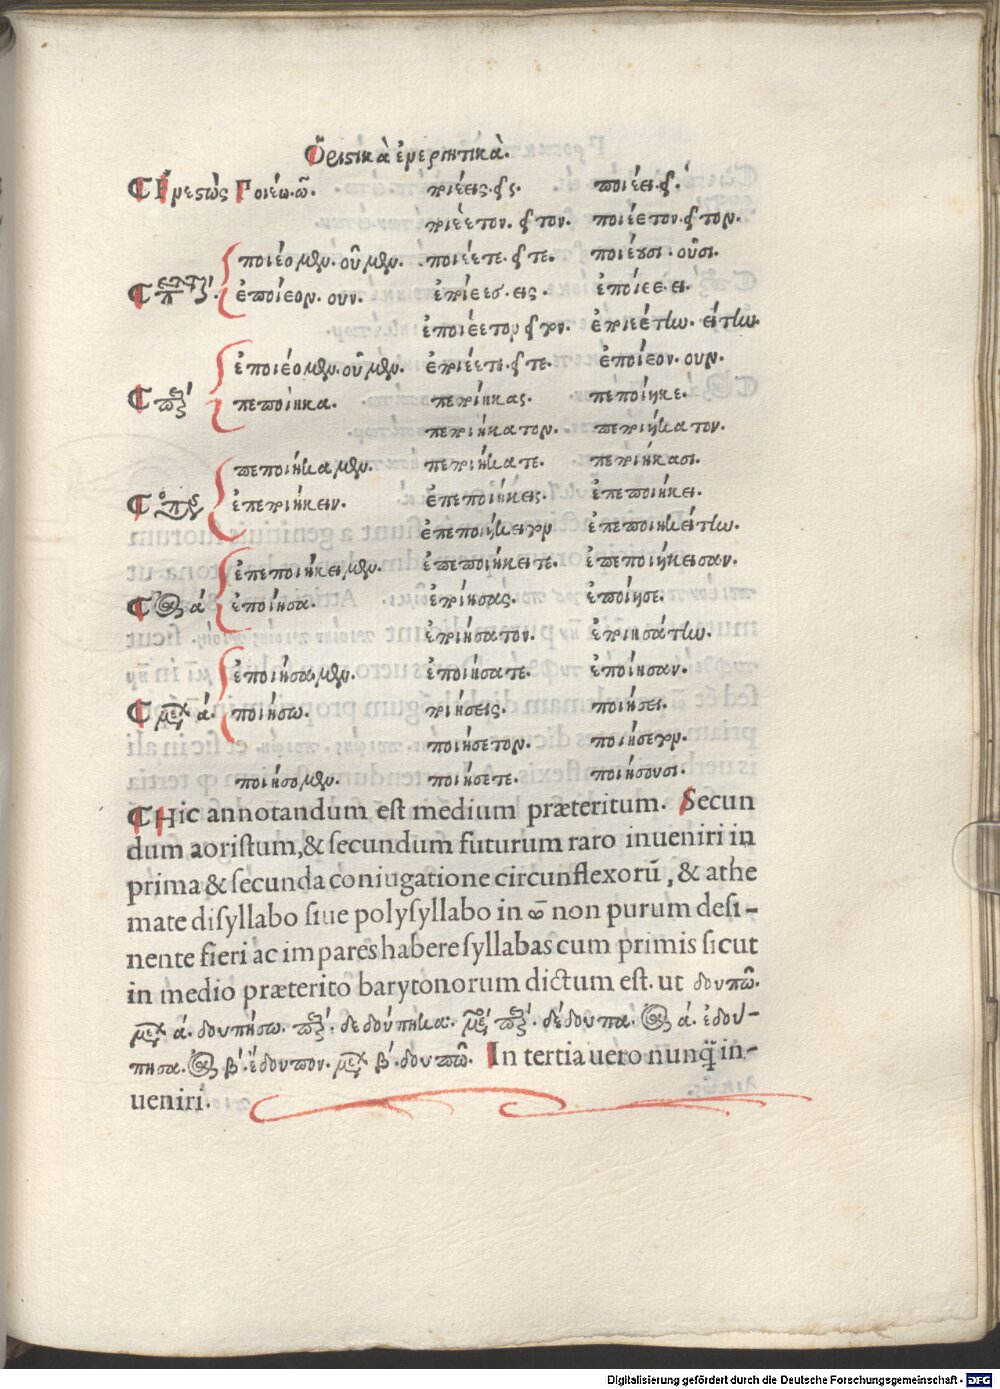 Ὁριστικὰ ἐνεργητικὰ.
Ἐνεστὼς Ποιέω.ῶ. ποιέεις.εῖς. ποιέει.εῖ.
ποιέετον.εῖτον. ποιέετον.εῖτον.
ποιέομεν.οῦμεν. ποιέετε.εῖτε. ποιέουσι.οῦσι.
ἐποίεον.ουν. ἐποίεες.εις. ἐποίεε.ει.
ἐποιέετον εῖτον. ἐποιεέτην.είτην.
ἐποιέομεν.οῦμεν. ἐποιέετε.εῖτε. ἐποίεον.ουν.
πεποίηκα. πεποίηκας. πεποίηκε.
πεποιήκατον. πεποιήκατον.
πεποιήκαμεν. πεποιήκατε. πεποιήκασι.
ἐπεποιήκειν. ἐπεποιήκεις. ἐπεποιήκει.
ἐπεποιήκειτον ἐπεποιηκείτην.
ἐπεποιήκειμεν. ἐπεποιήκειτε. ἐπεποιήκεισαν.
ἐποίησα. ἐποίησας. ἐποίησε.
ἐποιήσατον. ἐποιησάτην.
ἐποιήσαμεν. ἐποιήσατε. ἐποίησαν.
ποιήσω. ποιήσεις. ποιήσει.
ποιήσετον. ποιήσετον.
ποιήσομεν. ποιήσετε. ποιήσουσι.
Hic annotandum est medium præteritum. Secun
dum aoristum,& secundum futurum raro inueniri in
prima & secunda coniugatione circunflexorū, & athe
mate disyllabo siue polysyllabo in ω non purum desi-
nente fieri ac impares habere syllabas cum primis sicut
in medio præterito barytonorum dictum est. ut δουπῶ.
ά. δουπήσω. δεδούπηκα. δέδουπα. ά. ἐδού-
πησα. β'. ἔδουπον. β'. δουπῶ. In tertia uero nunq̃ in-
ueniri.
Digitalisierung gefördert durch die Deutsche Forschungsgemeinschaft - DFG